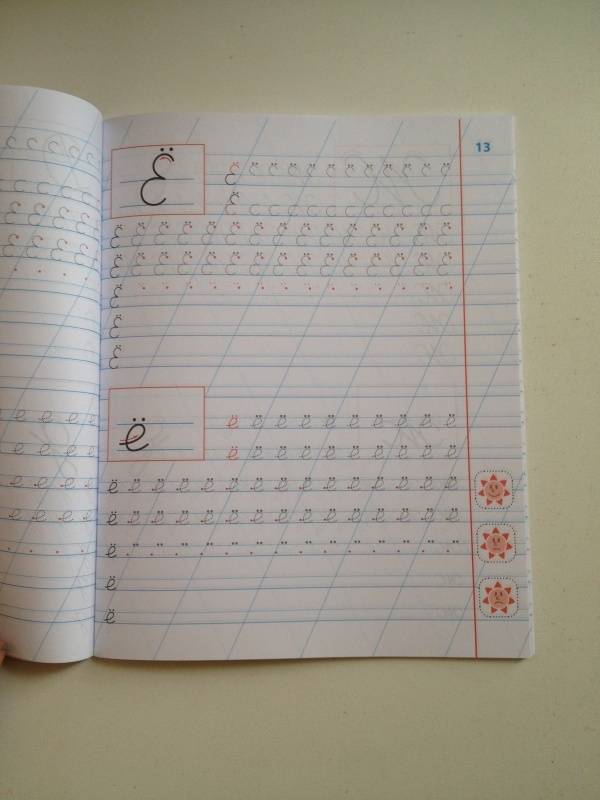 13
Ё
Ё
Ё
Ё Ё Ё Ё Ё Ё Ё Ё Ё Ё Ё Ё Ё Ё Ё
Ё Ё Ё Ё Ё Ё Ё Ё Ё Ё Ё Ё Ё Ё Ё
Ё
Ё
Ё
ё
ё ё ё ё ё ё ё ё ё ё
ё ё ё ё ё ё ё ё ё ё
ё ё ё ё ё ё ё ё ё ё ё ё ё ё ё
ё ё ё ё ё ё ё ё ё ё ё ё ё ё ё
ё
ё
ё